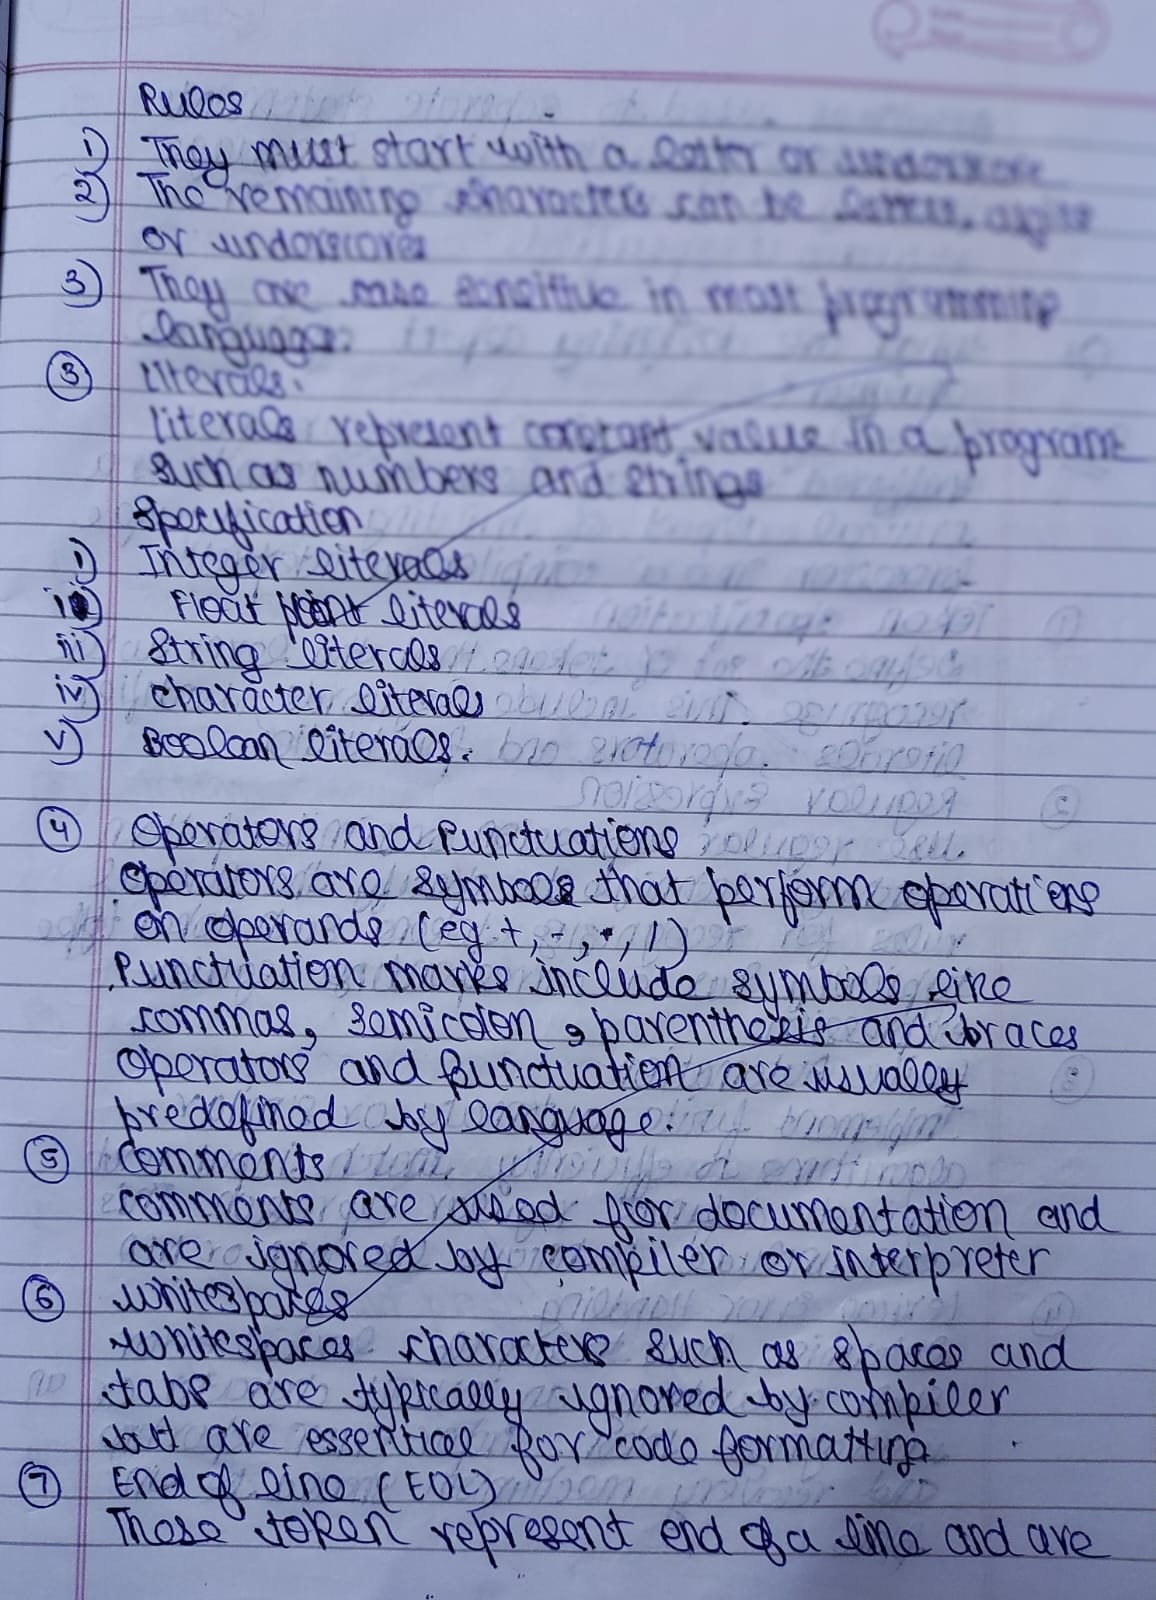 Rules
1) They must start with a letter or underscore
2) The remaining characters can be letters, digits
or underscores
3) They are case sensitive in most programming
languages.
3 Literals.
literals represent constant value in a program
such as numbers and strings
Specification
i) Integer literals
ii) Float point literals
iii) String literals
iv) character literals
v) Boolean literals.
4 Operators and Punctuations
Operators are symbols that perform operations
on operands (eg +, -, *, /)
Punctuation marks include symbols like
commas, semicolon, parenthesis and braces
Operators and Punctuation are usually
predefined by language.
5 Comments
Comments are used for documentation and
are ignored by compiler or interpreter
6 Whitespaces
Whitespaces characters such as spaces and
tabs are typically ignored by compiler
but are essential for code formatting
7 End of line (EOL)
These token represent end of a line and are